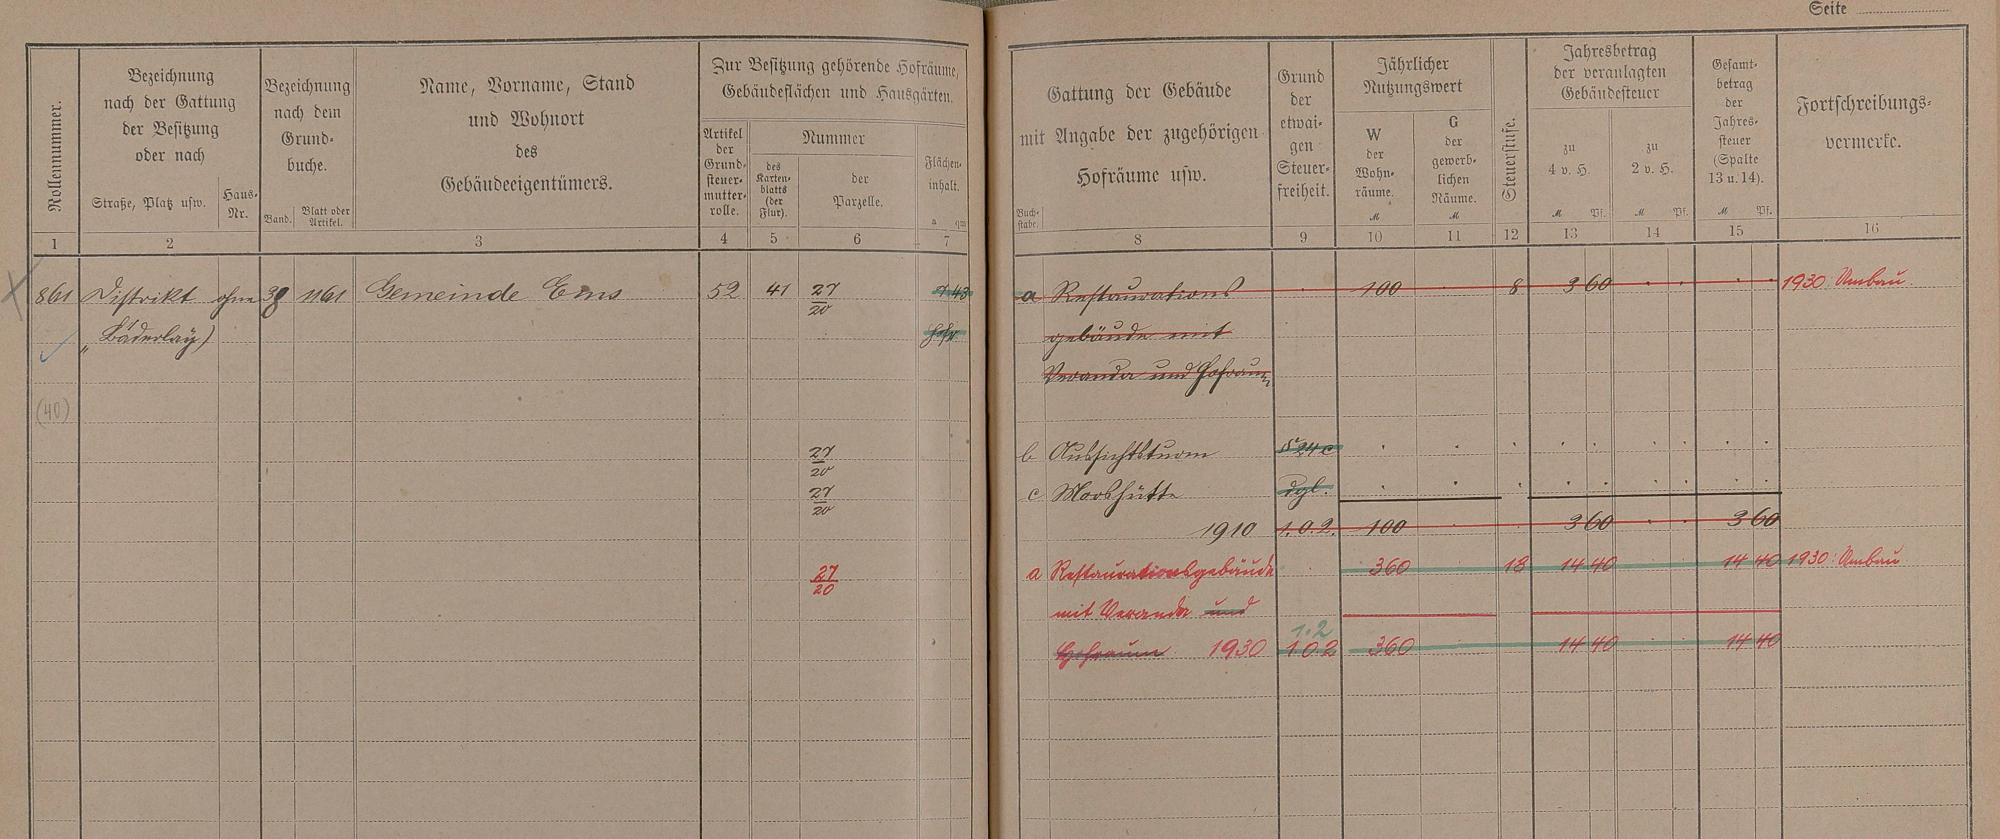 Seite
Rollennummer.
Bezeichnung
nach der Gattung
der Besitzung
oder nach
Straße, Platz usw.
Haus-
Nr.
Bezeichnung
nach dem
Grund-
buche.
Band.
Blatt oder
Artikel.
Name, Vorname, Stand
und Wohnort
des
Gebäudeeigentümers.
Zur Besitzung gehörende Hofräume,
Gebäudeflächen und Hausgärten.
Artikel
der
Grund-
steuer-
mutter-
rolle.
Nummer
des
Karten-
blatts
(der
Flur).
der
Parzelle.
Flächen-
inhalt.
a qm
1 2 3 4 5 6 7
861 Distrikt ohne 38 1161 Gemeinde Ems 52 41 27/20 43
„Bäderlay) Hofr.
(40)
27/20
27/20
27/20
Gattung der Gebäude
mit Angabe der zugehörigen
Hofräume usw.
Buch-
stabe.
Grund
der
etwai-
gen
Steuer-
freiheit.
Jährlicher
Nutzungswert
W
der
Wohn-
räume.
M
G
der
gewerb-
lichen
Räume.
M
Steuerstufe.
Jahresbetrag
der veranlagten
Gebäudesteuer
zu
4 v. H.
M Pf.
zu
2 v. H.
M Pf.
Gesamt-
betrag
der
Jahres-
steuer
(Spalte
13 u. 14).
M Pf.
Fortschreibungs-
vermerke.
8 9 10 11 12 13 14 15 16
a Restaurations 100 8 3 60 1930 Umbau
gebäude mit
Veranda und Hofraum
b Aussichtsturm § 24 c
c Mooshütte dgl.
1910 1. 0. 2. 100 3 60 3 60
a Restaurationsgebäude 360 18 14 40 14 40 1930: Umbau
mit Veranda und
1. 2
Hofraum 1930 1 0 2 360 14 40 14 40